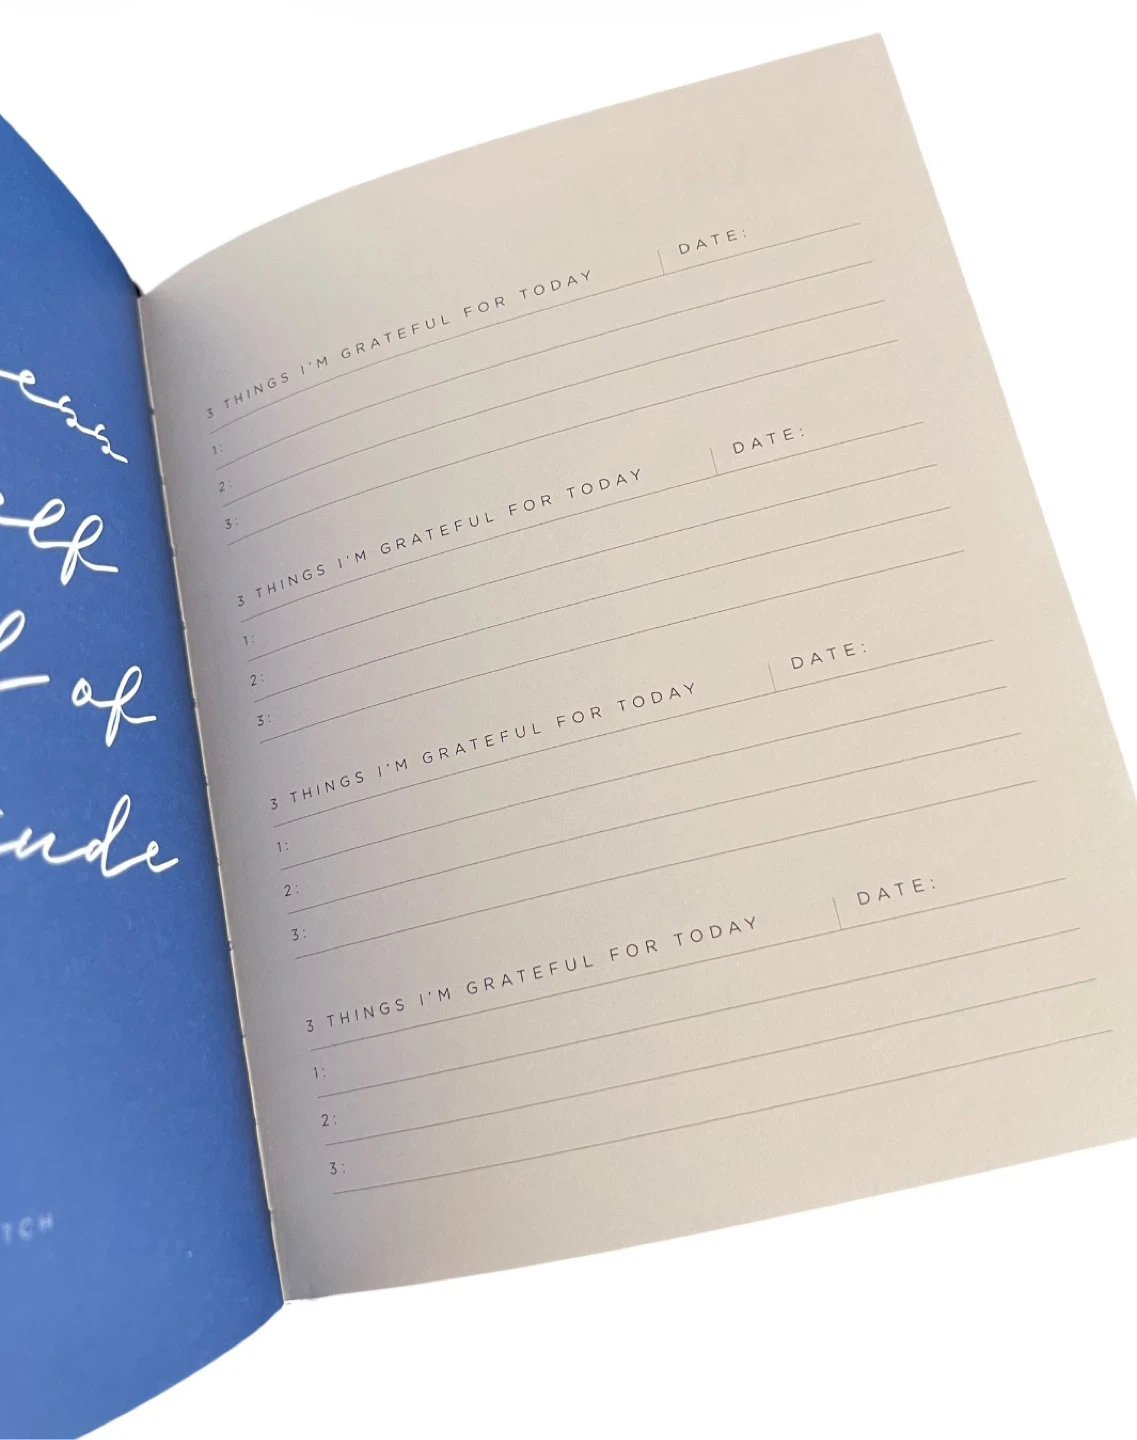 of
3 THINGS I'M GRATEFUL FOR TODAY DATE:
1:
2:
3:
3 THINGS I'M GRATEFUL FOR TODAY DATE:
1:
2:
3:
3 THINGS I'M GRATEFUL FOR TODAY DATE:
1:
2:
3:
3 THINGS I'M GRATEFUL FOR TODAY DATE:
1:
2:
3: